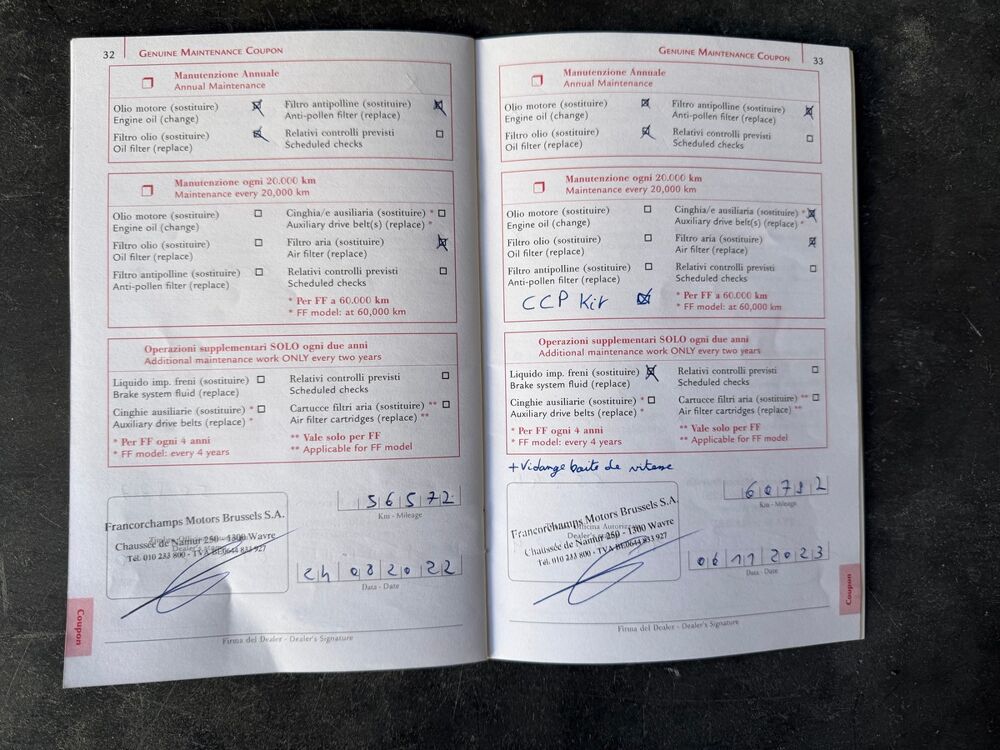 32 GENUINE MAINTENANCE COUPON
Manutenzione Annuale
Annual Maintenance
Olio motore (sostituire)
Engine oil (change)
Filtro olio (sostituire)
Oil filter (replace)
Filtro antipolline (sostituire)
Anti-pollen filter (replace)
Relativi controlli previsti
Scheduled checks
Manutenzione ogni 20.000 km
Maintenance every 20,000 km
Olio motore (sostituire)
Engine oil (change)
Filtro olio (sostituire)
Oil filter (replace)
Filtro antipolline (sostituire)
Anti-pollen filter (replace)
Cinghia/e ausiliaria (sostituire) *
Auxiliary drive belt(s) (replace) *
Filtro aria (sostituire)
Air filter (replace)
Relativi controlli previsti
Scheduled checks
* Per FF a 60.000 km
* FF model: at 60,000 km
Operazioni supplementari SOLO ogni due anni
Additional maintenance work ONLY every two years
Liquido imp. freni (sostituire)
Brake system fluid (replace)
Cinghie ausiliarie (sostituire) *
Auxiliary drive belts (replace) *
* Per FF ogni 4 anni
* FF model: every 4 years
Relativi controlli previsti
Scheduled checks
Cartucce filtri aria (sostituire) **
Air filter cartridges (replace) **
** Vale solo per FF
** Applicable for FF model
Francorchamps Motors Brussels S.A.
Chaussée de Namur 250 - 1300 Wavre
Tél. 010 233 800 - TVA BE0644 833 927
56572
Km - Mileage
24082022
Data - Date
Firma del Dealer - Dealer's Signature
Coupon
GENUINE MAINTENANCE COUPON 33
Manutenzione Annuale
Annual Maintenance
Olio motore (sostituire)
Engine oil (change)
Filtro olio (sostituire)
Oil filter (replace)
Filtro antipolline (sostituire)
Anti-pollen filter (replace)
Relativi controlli previsti
Scheduled checks
Manutenzione ogni 20.000 km
Maintenance every 20,000 km
Olio motore (sostituire)
Engine oil (change)
Filtro olio (sostituire)
Oil filter (replace)
Filtro antipolline (sostituire)
Anti-pollen filter (replace)
CCP Kit
Cinghia/e ausiliaria (sostituire) *
Auxiliary drive belt(s) (replace) *
Filtro aria (sostituire)
Air filter (replace)
Relativi controlli previsti
Scheduled checks
* Per FF a 60.000 km
* FF model: at 60,000 km
Operazioni supplementari SOLO ogni due anni
Additional maintenance work ONLY every two years
Liquido imp. freni (sostituire)
Brake system fluid (replace)
Cinghie ausiliarie (sostituire) *
Auxiliary drive belts (replace) *
* Per FF ogni 4 anni
* FF model: every 4 years
Relativi controlli previsti
Scheduled checks
Cartucce filtri aria (sostituire) **
Air filter cartridges (replace) **
** Vale solo per FF
** Applicable for FF model
+ Vidange boite de vitesse
Francorchamps Motors Brussels S.A.
Chaussée de Namur 250 - 1300 Wavre
Tél. 010 233 800 - TVA BE0644 833 927
60732
Km - Mileage
06112023
Data - Date
Firma del Dealer - Dealer's Signature
Coupon